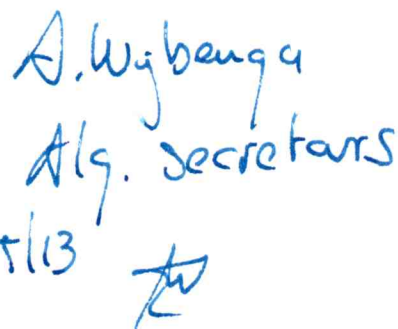 A. Wybenga
Alg. secretars
5/13